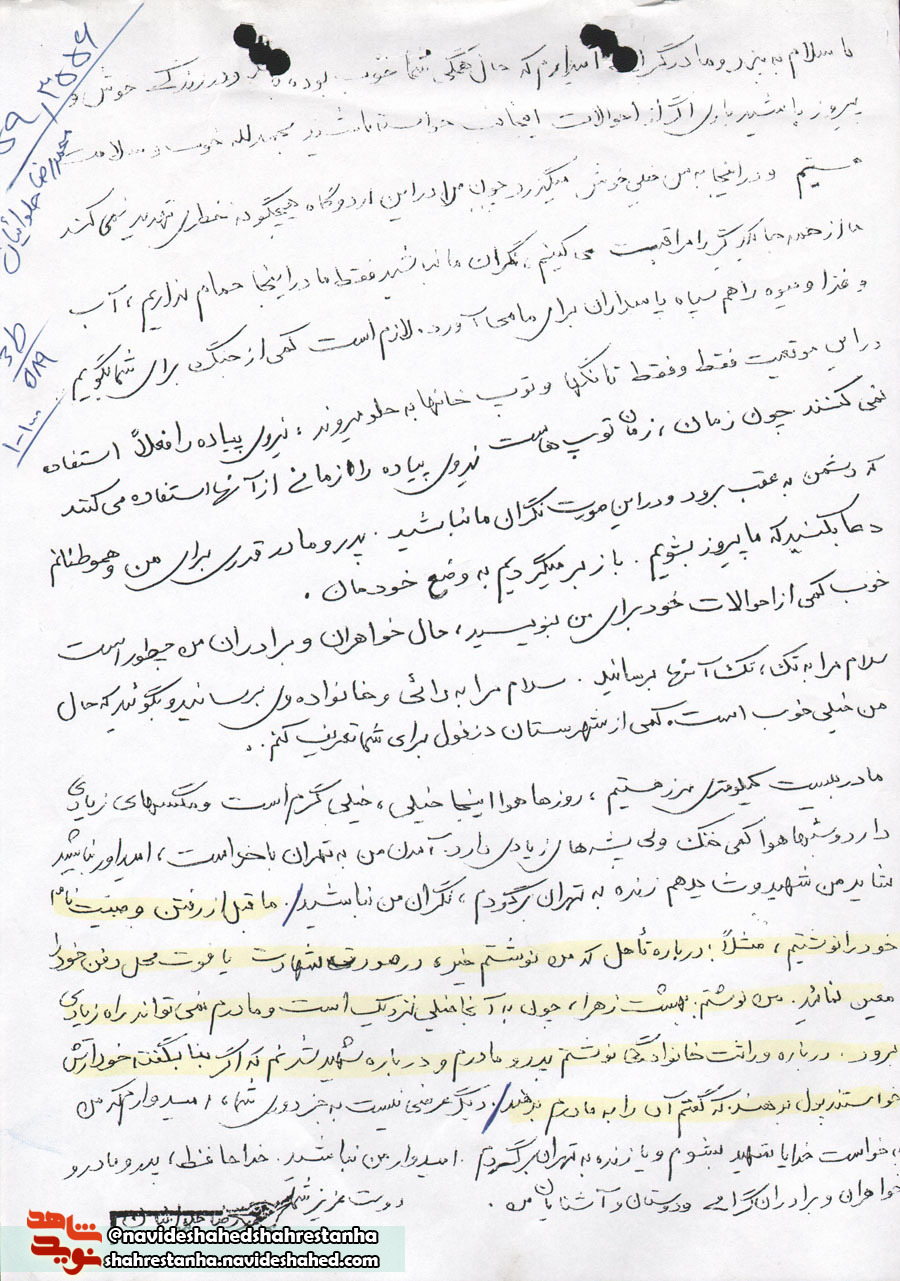 با سلام به پدر و مادر گرامی امیدوارم که حال همگی شما خوب بوده و در زندگی خوش و
پیروز باشید باری اگر از احوالات اینجانب خواسته باشید بحمدلله خوب و سلامت
هستیم و در اینجا به من خیلی خوش میگذرد چون ما در این اردوگاه هیچگونه خطری تهدید نمی کند
ما از همه جا یکدیگر را مراقبت می کنیم، نگران ما نباشید فقط ما در اینجا حمام نداریم، آب
و غذا و میوه را هم سپاه پاسداران برای ما می آورد. لازم است کمی از جنگ برای شما بگویم
در این موقعیت فقط و فقط تانکها و توپ خانها به جلو میروند، نیروی پیاده را فعلاً استفاده
نمی کنند چون زمان، زمان توپ هاست نیروی پیاده را زمانی از آنها استفاده می کنند
که دشمن به عقب برود و در این صورت نگران ما نباشید. پدر و مادر قدری برای من و هموطنانم
دعا بکنید که ما پیروز بشویم. باز بر میگردیم به وضع خودمان.
خوب کمی از احوالات خود برای من بنویسید، حال خواهران و برادران من چطور است
سلام مرا به تک، تک آنها برسانید. سلام مرا به دائی و خانواده وی برسانید و بگوئید که حال
من خیلی خوب است. کمی از شهرستان دزفول برای شما تعریف کنم..
ما در بیست کیلومتری مرز هستیم، روزها هوا اینجا خیلی، خیلی گرم است و مگسهای زیادی
دارد و شبها هوا کمی خنک ولی پشه های زیادی دارد. آمدن من به تهران با خداست، امیدوار نباشید
شاید من شهید و شاید هم زنده به تهران برگردم، نگران من نباشید/. ما قبل از رفتن وصیت نامه
خود را نوشتیم، مثلاً: درباره تأهل که من نوشتم خیر، در صورت شهادت یا فوت محل دفن خود را
معین نمائید. من نوشتم. بهشت زهرا، چون به آنجا خیلی نزدیک است و مادرم نمی تواند راه زیادی
برود. درباره وراثت خانوادگی نوشتم پدر و مادرم و درباره شهید شدنم که اگر بنا بگفته خودشان
خواستند پول بدهند که گفتم آن را به مادرم بدهید/. دیگر عرضی نیست به جز دوری شما، امیدوارم که من
به خواست خدا یا شهید بشوم و یا زنده به تهران برگردم. امیدوار من نباشید. خداحافظ، پدر و مادر و
خواهران و برادران گرامی و دوستان و آشنایان من.
دوست عزیز شما
محمدرضا حلوائیان
@navideshahedshahrestanha
shahrestanha.navideshahed.com
شاهد
نوید